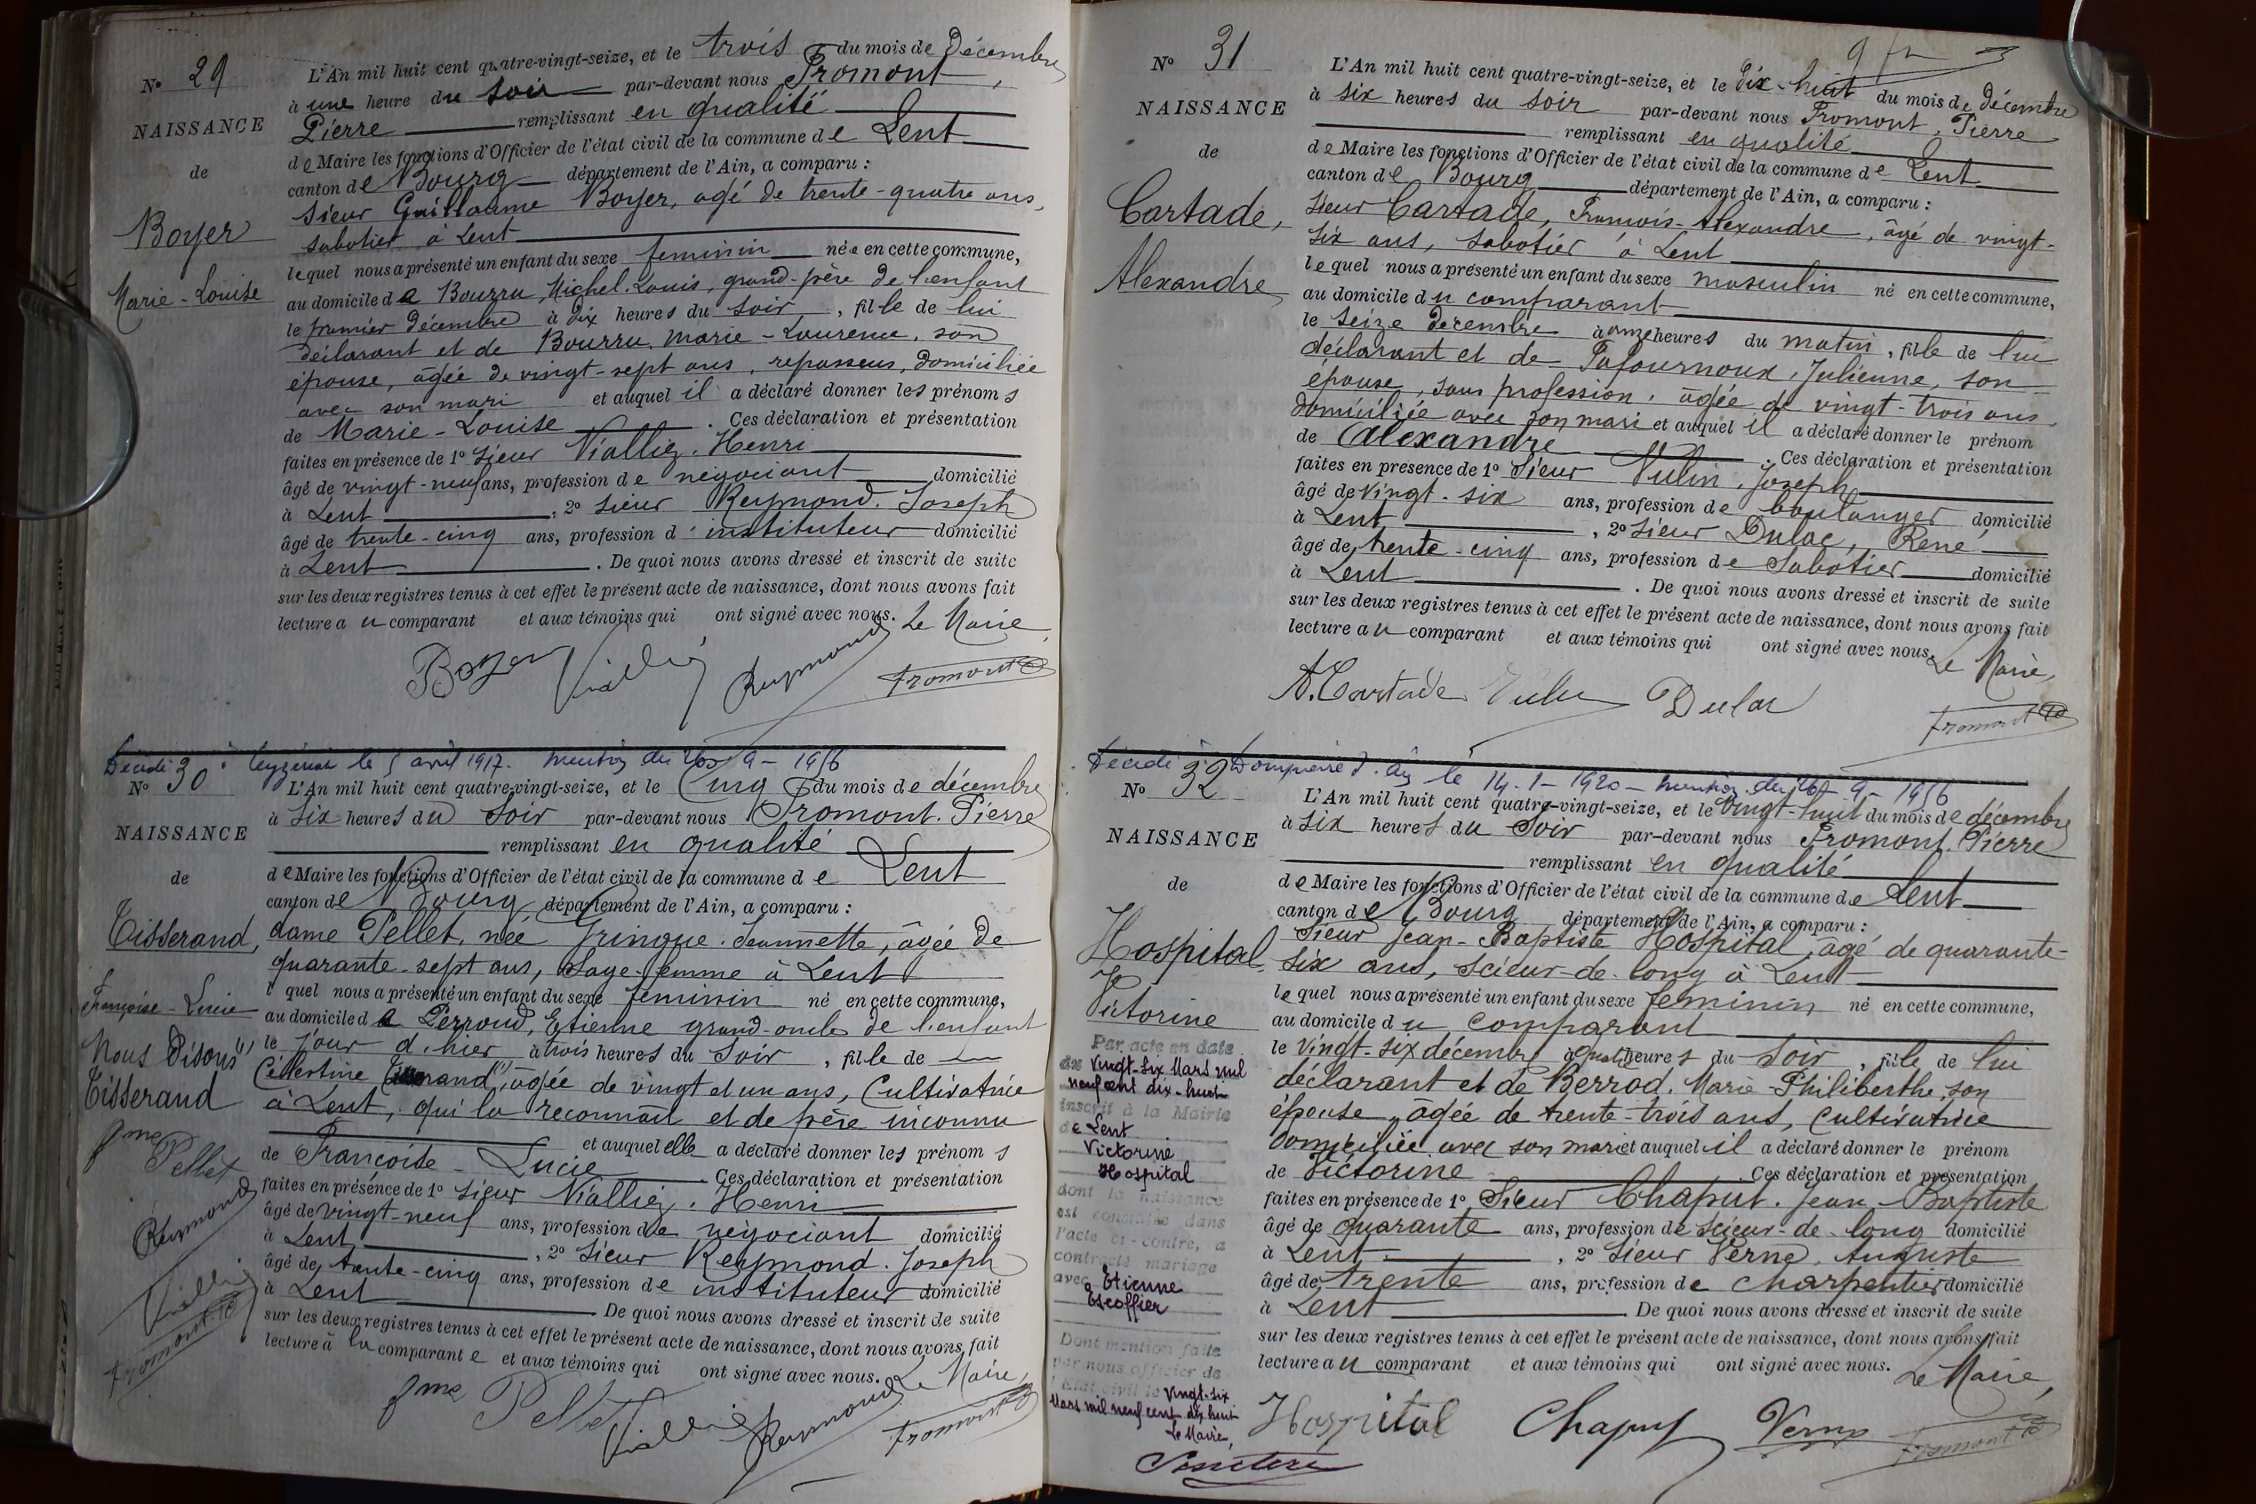 N° 29
NAISSANCE
de
Boyer
Marie-Louise
L'An mil huit cent quatre-vingt-seize, et le trois du mois de Décembre
à une heure du soir par-devant nous Fromont,
Pierre remplissant en qualité
de Maire les fonctions d'Officier de l'état civil de la commune de Lent
canton de Bourg département de l'Ain, a comparu :
sieur Guillaume Boyer, agé de trente-quatre ans,
sabotier à Lent
lequel nous a présenté un enfant du sexe feminin née en cette commune,
au domicile de Bourru, Michel-Louis, grand-père de l'enfant
le premier décembre à dix heures du soir, fille de lui
déclarant et de Bourru, Marie-Laurence, son
épouse, âgée de vingt-sept ans, repasseus, domiciliée
avec son mari et auquel il a déclaré donner les prénoms
de Marie-Louise. Ces déclaration et présentation
faites en présence de 1° sieur Nialliez. Henri
âgé de vingt-neuf ans, profession de négociant domicilié
à Lent, 2° sieur Reymond. Joseph
âgé de trente-cinq ans, profession d' instituteur domicilié
à Lent. De quoi nous avons dressé et inscrit de suite
sur les deux registres tenus à cet effet le présent acte de naissance, dont nous avons fait
lecture au comparant et aux témoins qui ont signé avec nous. Le Maire,
Boyer Reymond Fromont
Décédé à le 5 avril 1917. mention du 26-9-1956
N° 30
NAISSANCE
de
Tisserand,
Françoise-Lucie
Nous disons
Tisserand
Pellet
Reymond
Fromont
L'An mil huit cent quatre-vingt-seize, et le Cinq du mois de décembre
à six heures du soir par-devant nous Fromont. Pierre
remplissant en qualité
de Maire les fonctions d'Officier de l'état civil de la commune de Lent
canton de Bourg département de l'Ain, a comparu :
dame Pellet, née Gringue. Jeannette, âgée de
quarante-sept ans, sage-femme à Lent
l quel nous a présenté un enfant du sexe féminin né en cette commune,
au domicile de Perroud, Etienne grand-oncle de l'enfant
le jour d'hier à trois heures du soir, fille de
Célestine, âgée de vingt et un ans, Cultivatrice
à Lent, qui la reconnait et de père inconnu
et auquel elle a déclaré donner les prénoms
de Francoise-Lucie Ces déclaration et présentation
faites en présence de 1° sieur Nialliez. Henri
âgé de vingt-neuf ans, profession de négociant domicilié
à Lent, 2° sieur Reymond. Joseph
âgé de trente-cinq ans, profession de instituteur domicilié
à Lent De quoi nous avons dressé et inscrit de suite
sur les deux registres tenus à cet effet le présent acte de naissance, dont nous avons fait
lecture à la comparante et aux témoins qui ont signé avec nous. Le Maire,
Pellet Reymond Fromont
N° 31
NAISSANCE
de
Cartade,
Alexandre
L'An mil huit cent quatre-vingt-seize, et le dix-huit du mois de décembre
à six heures du soir par-devant nous Fromont, Pierre
remplissant en qualité
de Maire les fonctions d'Officier de l'état civil de la commune de Lent
canton de Bourg département de l'Ain, a comparu :
sieur Cartade, François-Alexandre, âgé de vingt-
six ans, sabotier à Lent
lequel nous a présenté un enfant du sexe masculin né en cette commune,
au domicile du comparant
le seize décembre à onze heures du matin, fille de lui
déclarant et de Pafournoux, Julienne, son
épouse, sans profession, âgée de vingt-trois ans,
domiciliée avec son mari et auquel il a déclaré donner le prénom
de Alexandre. Ces déclaration et présentation
faites en présence de 1° sieur Vulin, Joseph
âgé de vingt-six ans, profession de boulanger domicilié
à Lent, 2° sieur Dulac, René
âgé de trente-cinq ans, profession de sabotier domicilié
à Lent. De quoi nous avons dressé et inscrit de suite
sur les deux registres tenus à cet effet le présent acte de naissance, dont nous avons fait
lecture au comparant et aux témoins qui ont signé avec nous. Le Maire,
A. Cartade Vulin Dulac Fromont
Décédé à Dompierre s. Ain le 14-1-1920 - mention du 26-9-1956
N° 32
NAISSANCE
de
Hospital
Victorine
Par acte en date
du Vingt-six Mars mil
neuf cent dix-huit
inscrit à la Mairie
de Lent
Victorine
Hospital
dont la naissance
est constatée dans
l'acte ci-contre, a
contracté mariage
avec Etienne
Escoffier
Dont mention faite
par nous officier de
l'état civil le Vingt-six
Mars mil neuf cent dix huit
Le Maire,
L'An mil huit cent quatre-vingt-seize, et le vingt-huit du mois de décembre
à six heures du soir par-devant nous Fromont. Pierre
remplissant en qualité
de Maire les fonctions d'Officier de l'état civil de la commune de Lent
canton de Bourg département de l'Ain, a comparu :
sieur Jean-Baptiste Hospital, agé de quarante-
six ans, scieur-de-long à Lent
lequel nous a présenté un enfant du sexe feminin né en cette commune,
au domicile du comparant
le vingt-six décembre à quatre heures du soir, fille de lui
déclarant et de Berrod. Marie-Philiberthe, son
épouse, âgée de trente-trois ans, cultivatrice
domiciliée avec son mari et auquel il a déclaré donner le prénom
de Victorine. Ces déclaration et présentation
faites en présence de 1° Sieur Chaput. Jean-Baptiste
âgé de quarante ans, profession de scieur-de-long domicilié
à Lent, 2° sieur Verne, Auguste
âgé de trente ans, profession de charpentier domicilié
à Lent De quoi nous avons dressé et inscrit de suite
sur les deux registres tenus à cet effet le présent acte de naissance, dont nous avons fait
lecture au comparant et aux témoins qui ont signé avec nous. Le Maire,
Hospital Chaput Verne Fromont